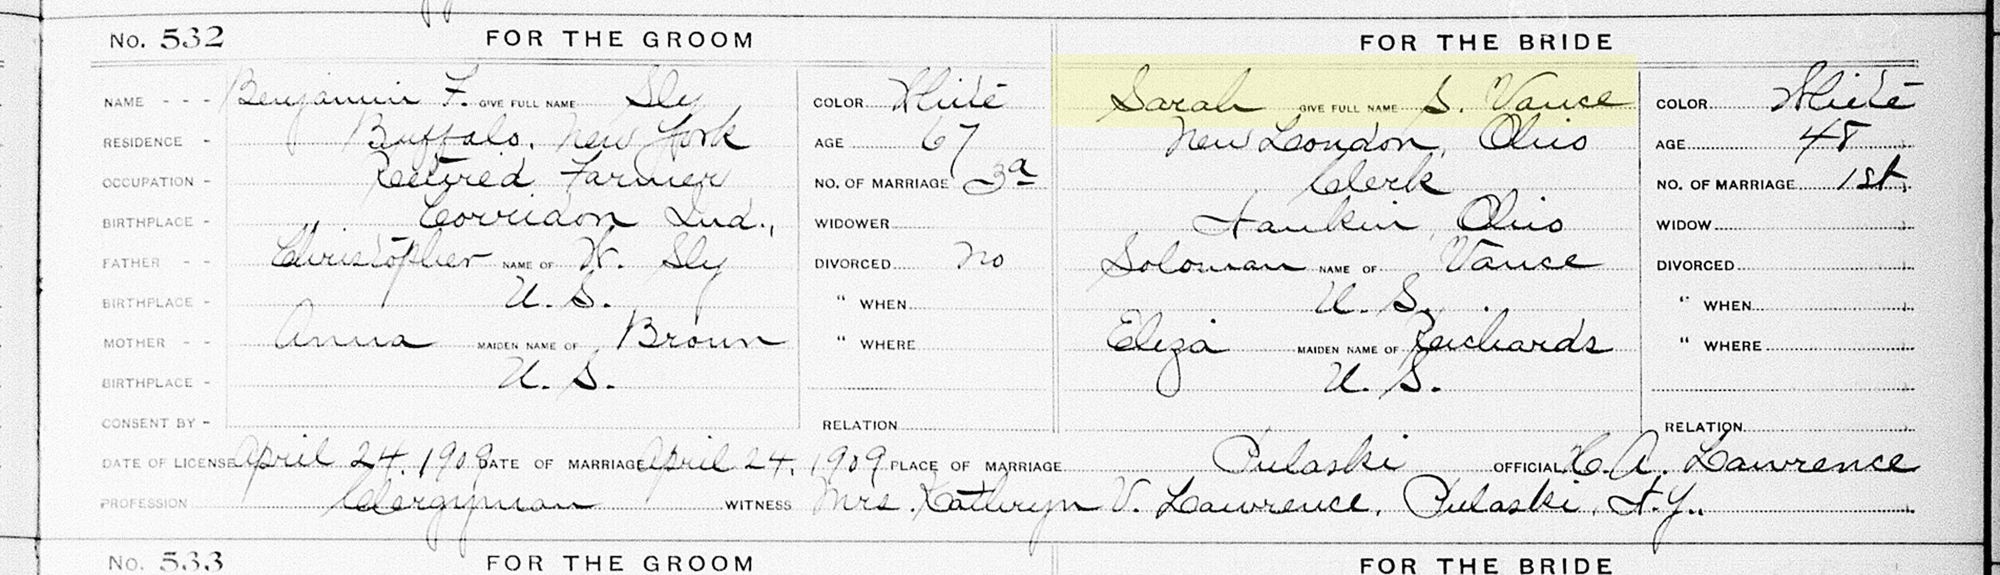 No. 532 FOR THE GROOM FOR THE BRIDE
NAME - - - Benjamin F. GIVE FULL NAME Sly COLOR White Sarah GIVE FULL NAME S. Vance COLOR White
RESIDENCE - Buffalo, New York AGE 67 New London, Ohio AGE 48
OCCUPATION - Retired Farmer NO. OF MARRIAGE 3d Clerk NO. OF MARRIAGE 1st.
BIRTHPLACE - Corridon Ind., WIDOWER Hankin, Ohio WIDOW
FATHER - - Christopher NAME OF W. Sly DIVORCED No Soloman NAME OF Vance DIVORCED
BIRTHPLACE - U. S. " WHEN U. S. " WHEN
MOTHER - - Anna MAIDEN NAME OF Brown " WHERE Eliza MAIDEN NAME OF Reichards " WHERE
BIRTHPLACE - U. S. U. S.
CONSENT BY - RELATION RELATION
DATE OF LICENSE April 24, 1909 DATE OF MARRIAGE April 24, 1909 PLACE OF MARRIAGE Pulaski OFFICIAL H. A. Lawrence
PROFESSION Clergyman WITNESS Mrs. Kathryn V. Lawrence, Pulaski, N.Y.
No. 533 FOR THE GROOM FOR THE BRIDE